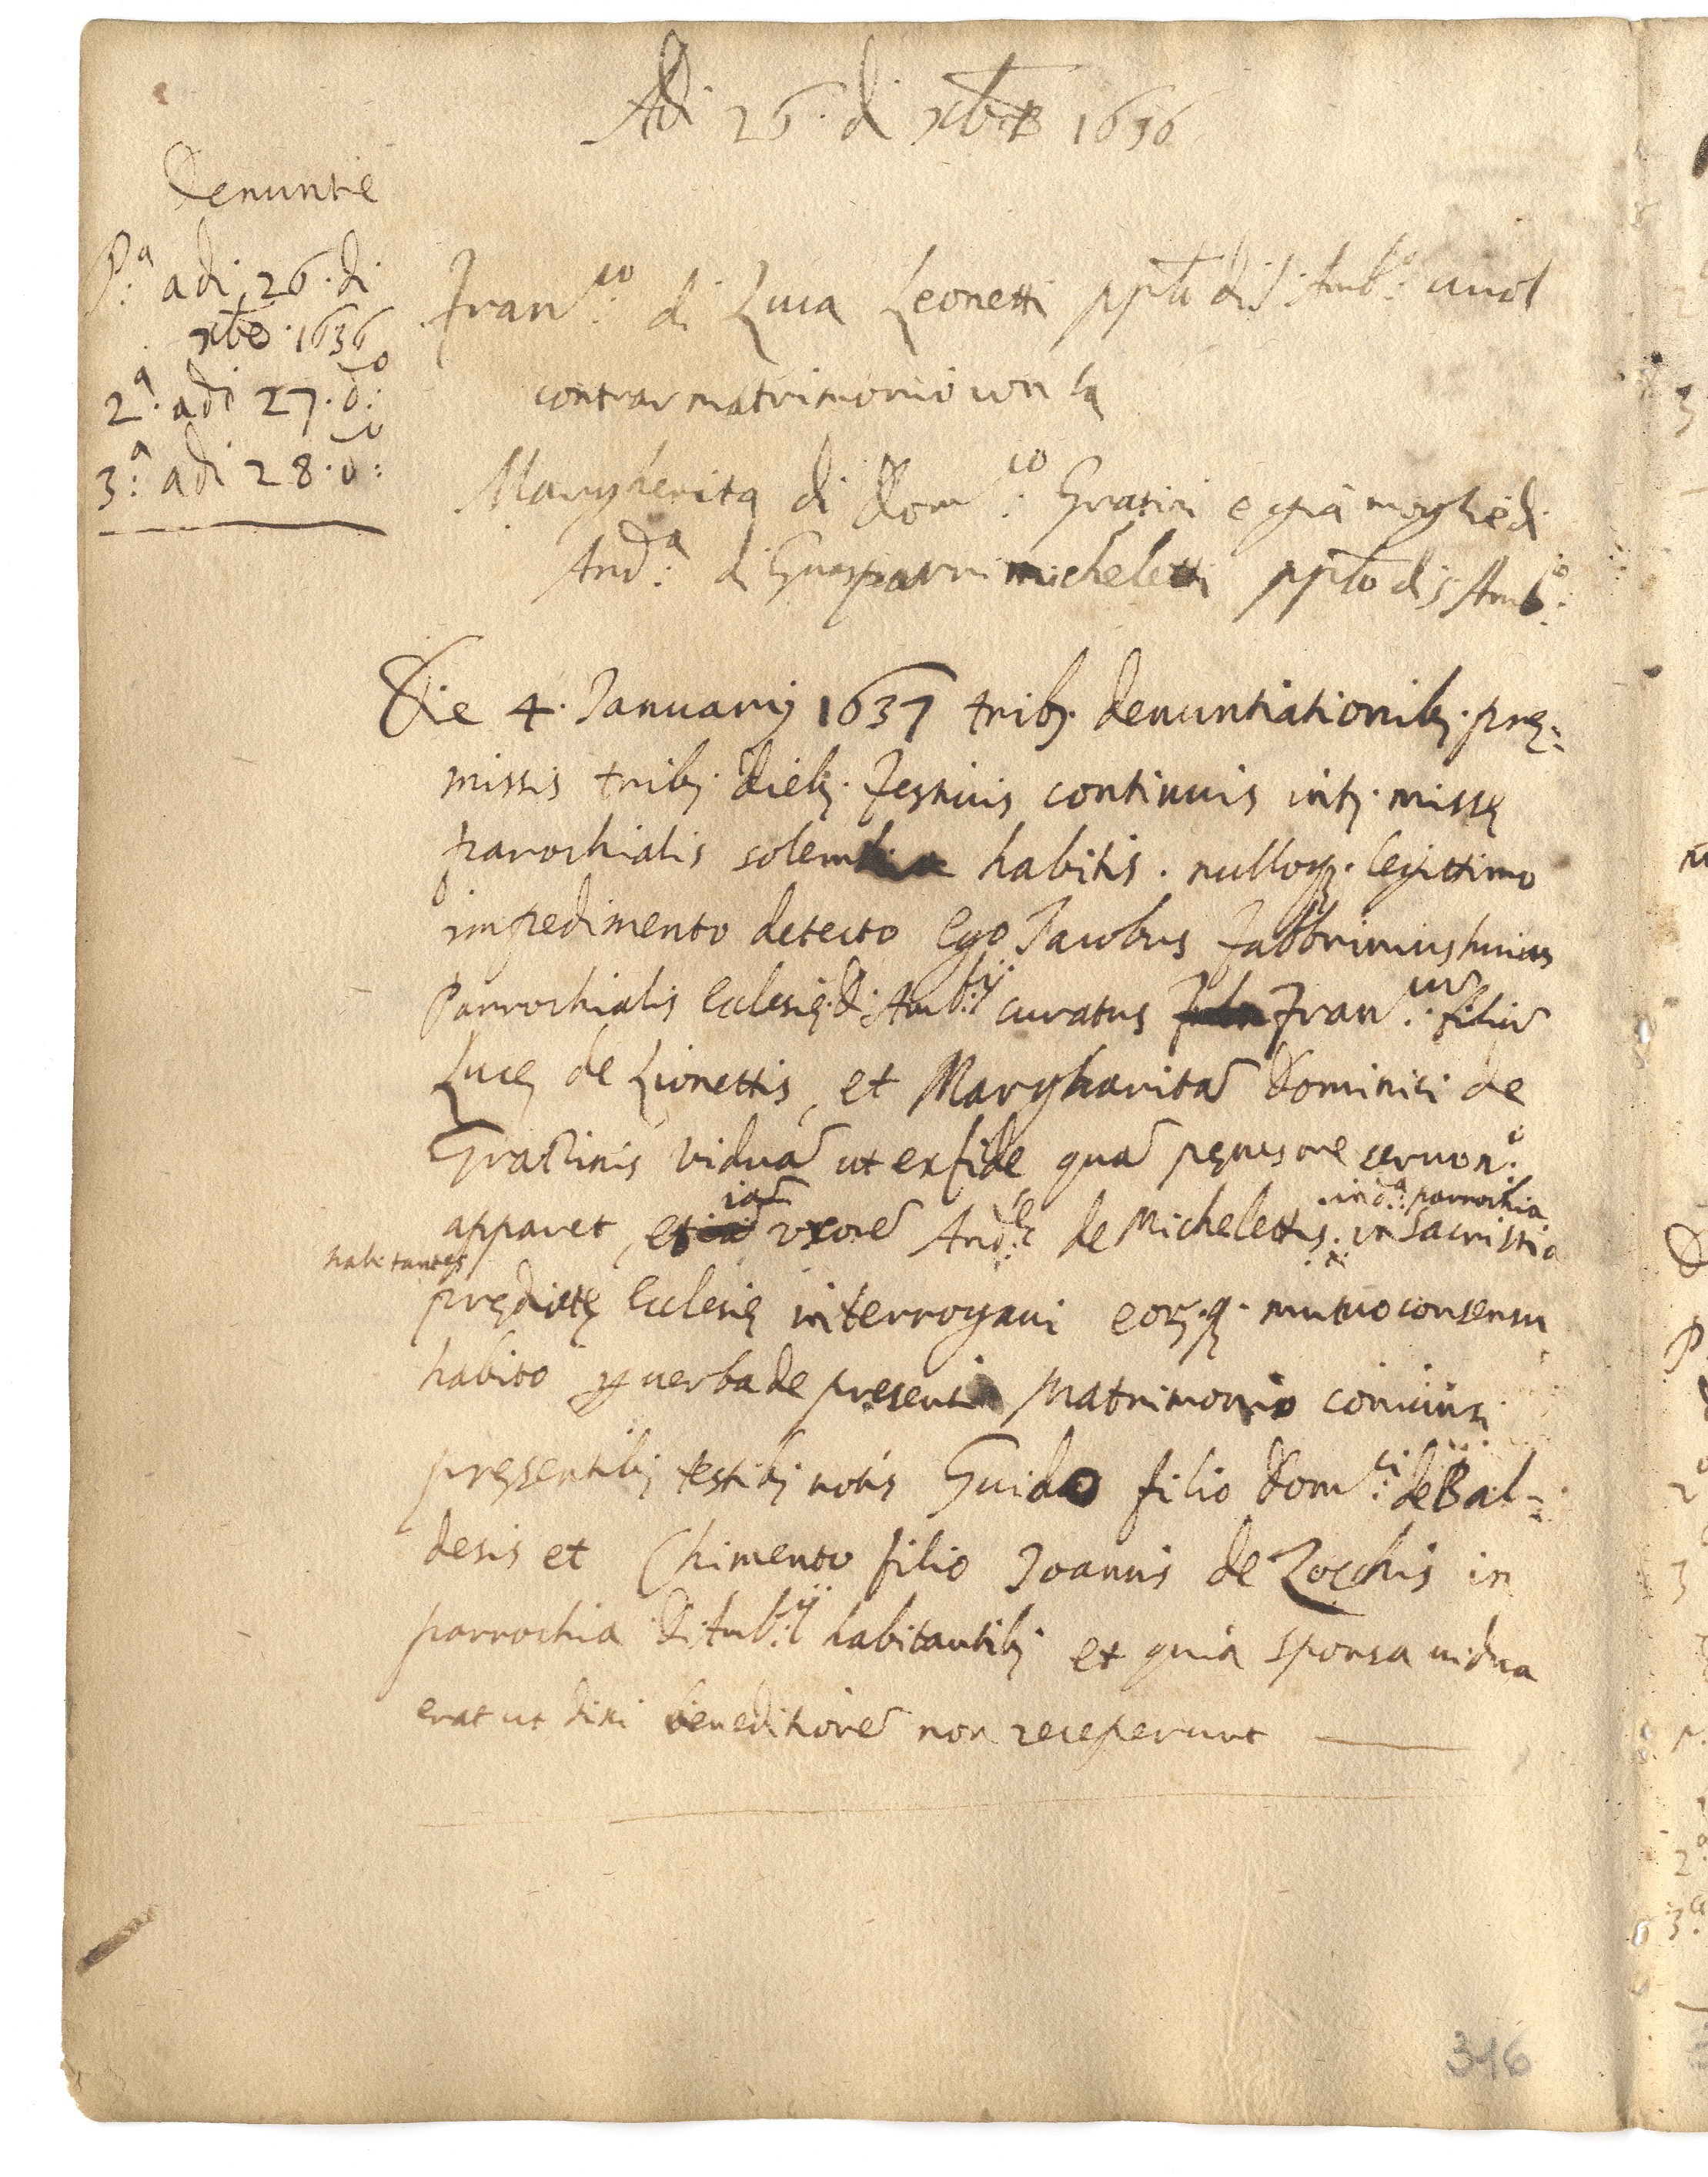 Adi 26. di Xbre 1636
Denuntie
P.a adi 26. di
Xbre. 1636
2.a adi 27. d.o
3.a adi 28. d.o
Fran.co di Luca Leonetti pp.to di S. Amb.o vuol
contrar matrimonio con la
Margherita di Dom.co Gratini e già moglie di
And.a di Guasparri Micheletti pp.to di S. Amb.o
Die 4. Januarij 1637 tribq. denuntiationibq. prę=
missis tribq. diebq. festivis continuis intq. missę
parochialis solemnia habitis. nulloqq. legittimo
impedimento detecto Ego Jacobus Fabbrinius huius
Parrochialis Eclesię S. Amb.ij curatus Fran.cum filiũ
Lucę de Lionettis, et Margharitã Dominici de
Gratinis viduã ut ex fide quã penes me servon.o
iã in d.a parrochia
apparet, et uxorẽ And.ę de Michelettis. in Sacristia
habitantes
prędictę Eclesię interrogavi eorq.q. mutuo consensu
habito p verba de presenti Matrimonio coniunsi
pręsentibq testibq notis Guido filio Dom.ci de Bal=
desis et Chimento filio Joannis de Zocchis in
parrochia S. Amb.ij habitantibq et quia sponsa vidua
erat ut dixi beneditionẽ non receperunt
346